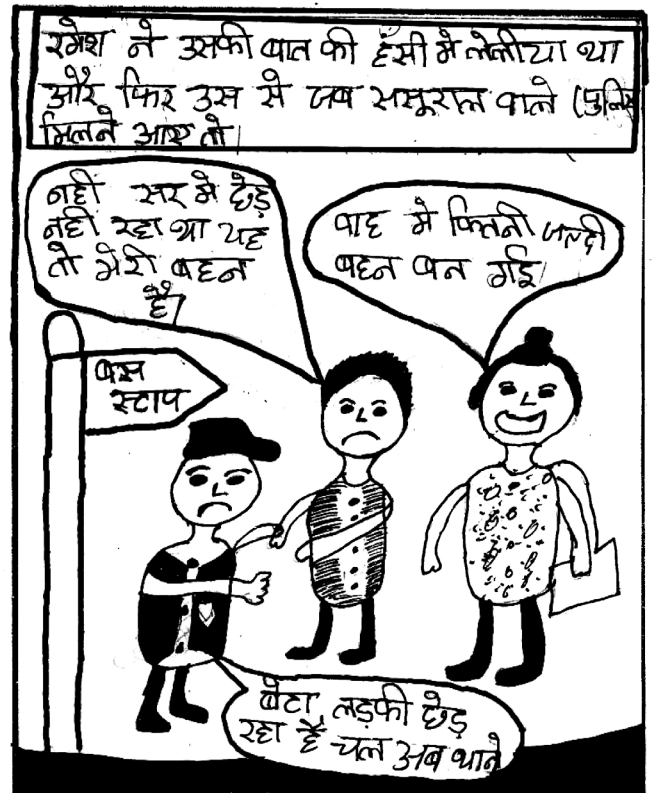 रमेश ने उसकी बात की हँसी मे लेलीया था
और फिर उस से जब ससूराल वाले (पुलिस
मिलने आए तो।
नही सर मे छेड़
नही रहा था यह
तो मेरी बहन
है
वाह मे कितनी जल्दी
बहन बन गई
बस
स्टाप
बेटा लड़की छेड़
रहा है चल अब थाने